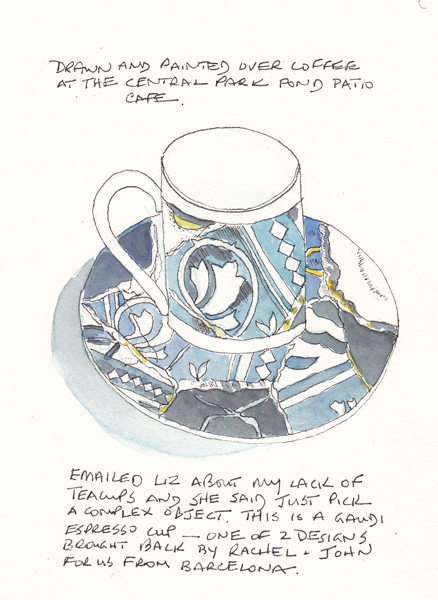 DRAWN AND PAINTED OVER COFFEE
AT THE CENTRAL PARK POND PATIO
CAFE.
EMAILED LIZ ABOUT MY LACK OF
TEACUPS AND SHE SAID JUST PICK
A COMPLEX OBJECT. THIS IS A GAUDI
ESPRESSO CUP — ONE OF 2 DESIGNS
BROUGHT BACK BY RACHEL + JOHN
FOR US FROM BARCELONA.